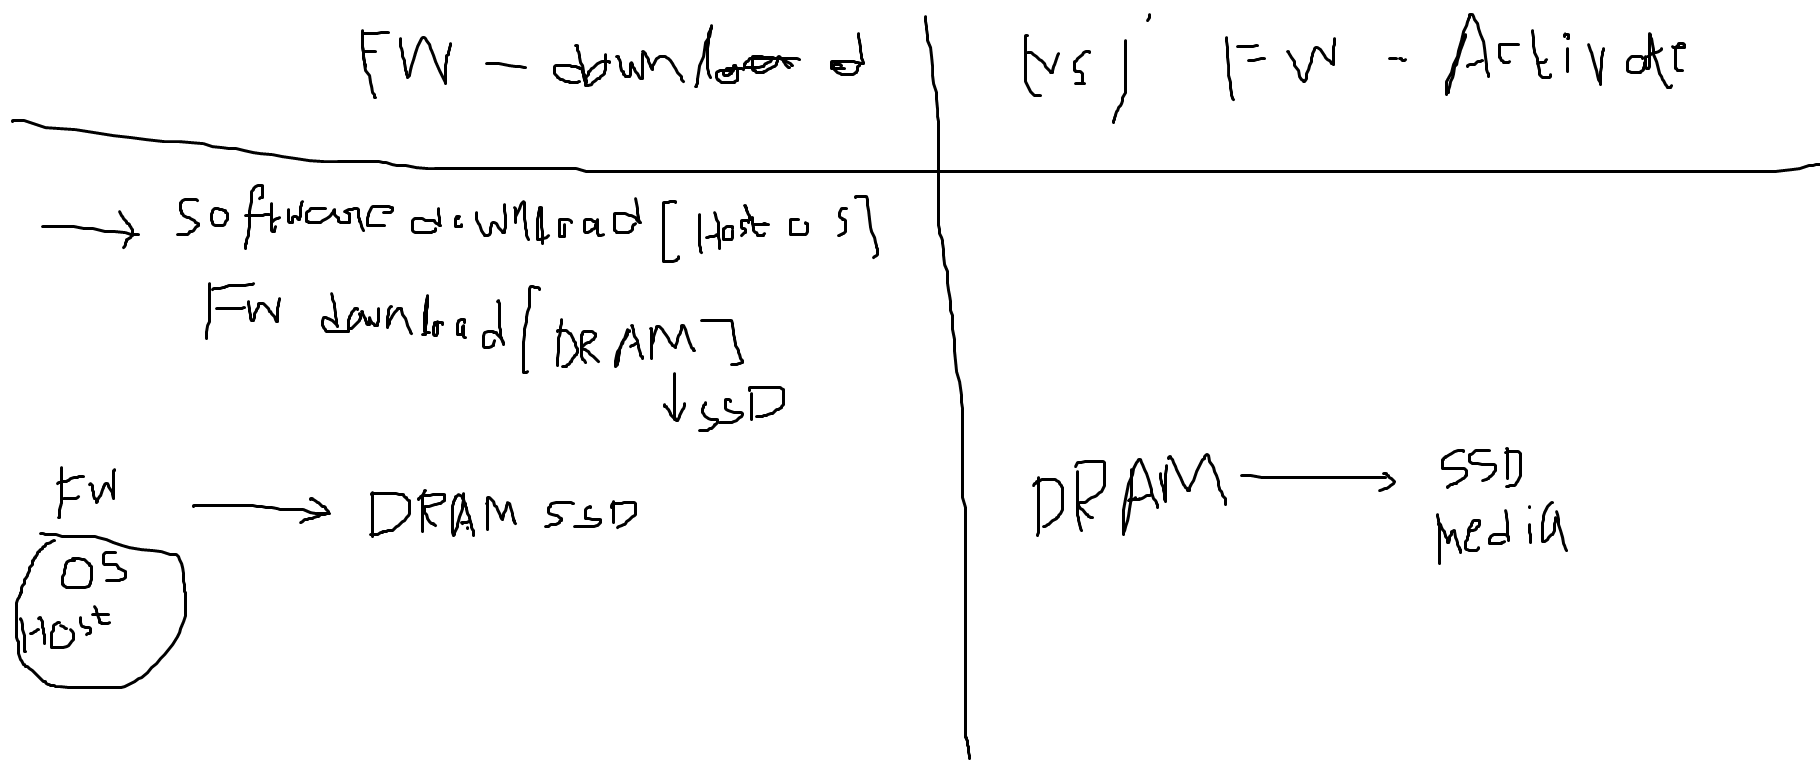 FW - download [vs] FW - Activate
→ Software download [Host OS]
FW download [DRAM]
↓ SSD
FW → DRAM SSD
OS
Host
DRAM → SSD
Media